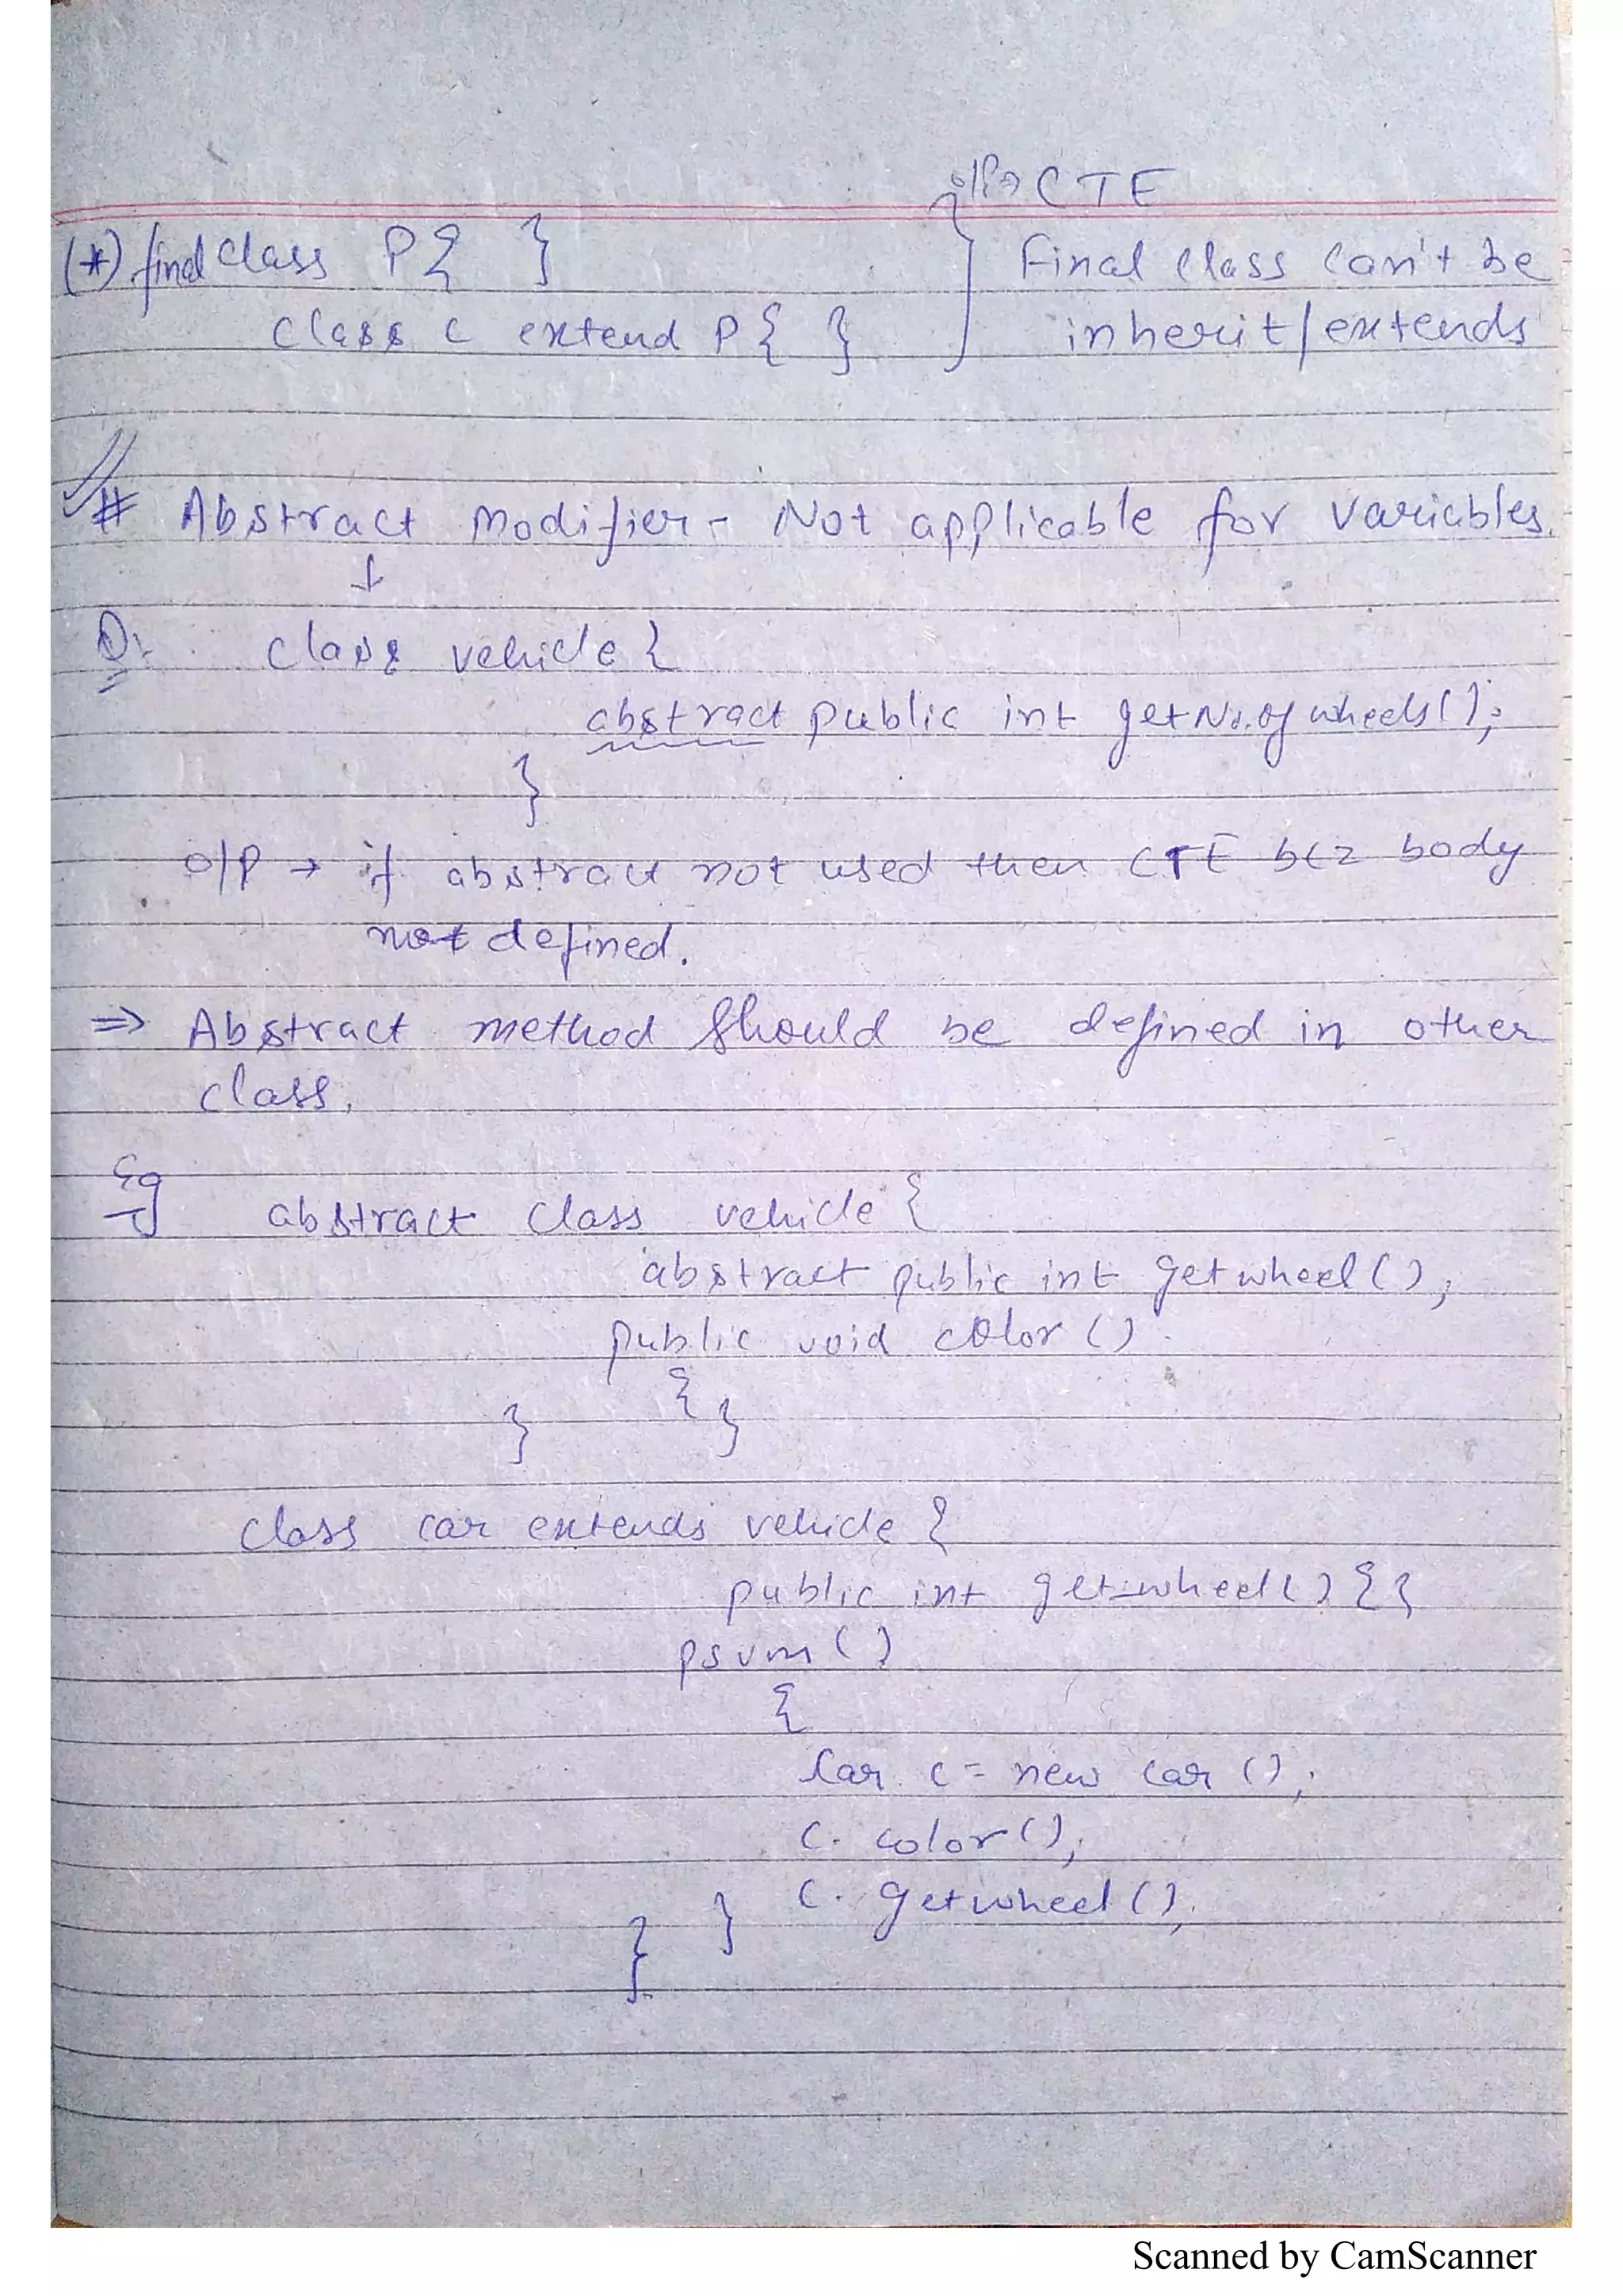 o/p → CTE
(*) final class P{ }
Final class can't be
class c extend P{ }
inherit/extends
# Abstract Modifier - Not applicable for variables.
↓
Q: class vehicle {
abstract public int getNo.of wheels();
}
o/p → if abstract not used then CTE bcz body
not defined.
⇒ Abstract method should be defined in other
class.
Eg abstract class vehicle {
abstract public int getwheel();
public void color()
{ }
}
class car extends vehicle {
public int getwheel() { }
psvm()
{
Car c = new car();
c. color();
c. getwheel();
}
}
Scanned by CamScanner